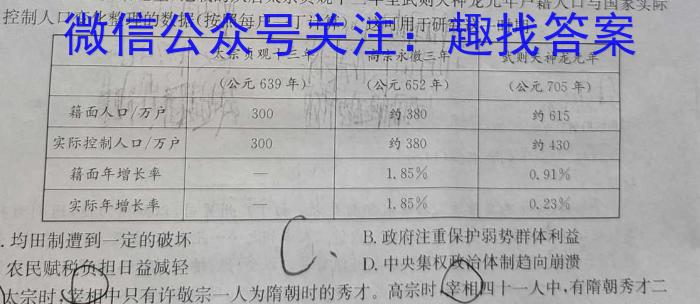 年至武则天神龙元年户籍人口与国家实际
控制人口
的数据(按照每户
微信公众号关注：趣找答案
太宗贞观十三年 高宗永徽三年 武则天神龙元年
(公元639年) (公元652年) (公元705年)
籍面人口/万户 300 约380 约615
实际控制人口/万户 300 约380 约430
籍面年增长率 — 1.85% 0.91%
实际年增长率 — 1.85% 0.23%
.均田制遭到一定的破坏 B.政府注重保护弱势群体利益
农民赋税负担日益减轻 D.中央集权政治体制趋向崩溃
C.
太宗时,宰相中只有许敬宗一人为隋朝时的秀才。高宗时,宰相四十一人中,有隋朝秀才二